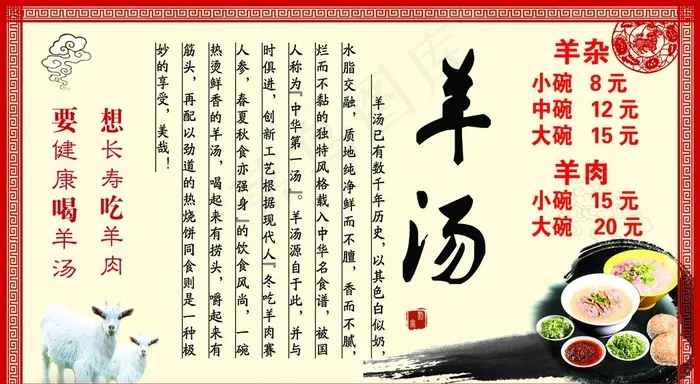 羊杂
小碗 8元
中碗 12元
大碗 15元
羊肉
小碗 15元
大碗 20元
羊汤
羊汤已有数千年历史，以其色白似奶，
水脂交融，质地纯净鲜而不膻，香而不腻，
烂而不黏的独特风格载入中华名食谱，被国
人称为『中华第一汤』。羊汤源自于此，并与
时俱进，创新工艺根据现代人『冬吃羊肉赛
人参，春夏秋食亦强身』的饮食风尚，一碗
热烫鲜香的羊汤，喝起来有捞头，嚼起来有
筋头，再配以劲道的热烧饼同食则是一种极
妙的享受，美哉！
想长寿吃羊肉
要健康喝羊汤